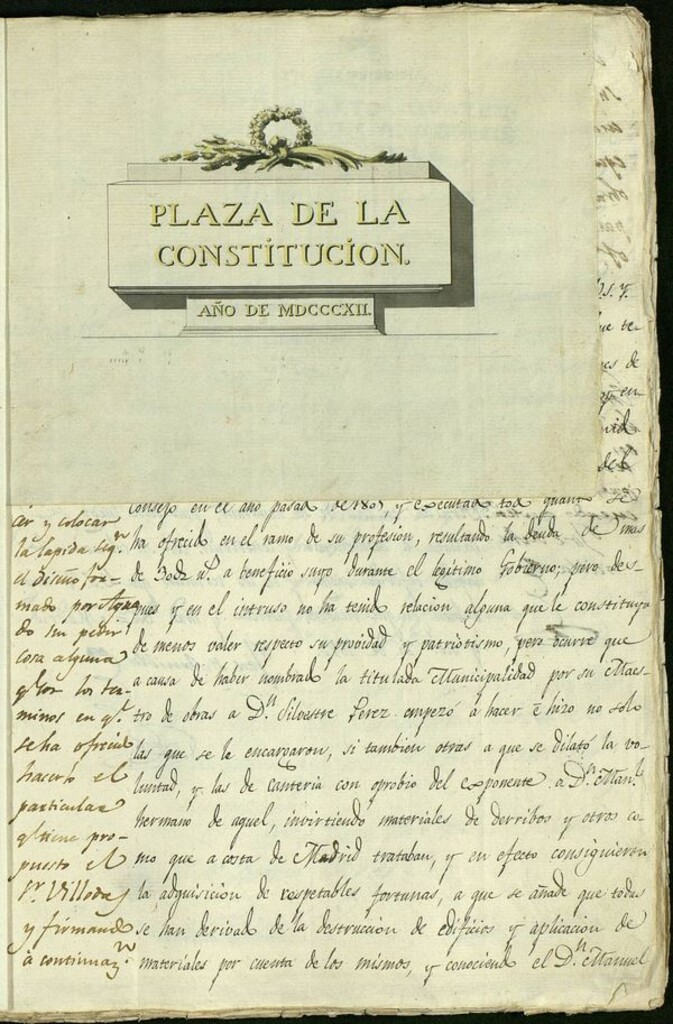 PLAZA DE LA
CONSTITUCION.
AÑO DE MDCCCXII.
cer y colocar
la lapida seg.ⁿ
el diseño for-
mado por
do sin pedir
cosa alguna
los ter-
minos en q.ᵉ
se ha ofrecido
hacerlo el
particular
q.ᵉ tiene pro-
puesto el
S.ʳ Villodas
y firmando
à continuaz.ⁿ
Consejo en el año pasado de 1801, y executado todo quanto se
ha ofrecido en el ramo de su profesion, resultando la deuda de mas
de a beneficio suyo durante el legitimo Gobierno; pero des-
pues y en el intruso no ha tenido relacion alguna que le constituya
de menos valer respecto su providad y patriotismo, pero ocurre que
a causa de haber nombrado la titulada Municipalidad por su Maes-
tro de obras a D.ⁿ Silvestre Perez empezó à hacer è hizo no solo
las que se le encargaron, si tambien otras a que se dilató la vo-
luntad, y las de canteria con oprobio del exponente a D.ⁿ Man.ˡ
hermano de aquel, invirtiendo materiales de derribos y otros co-
mo que a costa de Madrid trataban, y en efecto consiguieron
la adquisicion de respetables fortunas, a que se añade que todas
se han derivado de la destruccion de edificios y aplicacion de
materiales por cuenta de los mismos, y conociendo el D.ⁿ Manuel